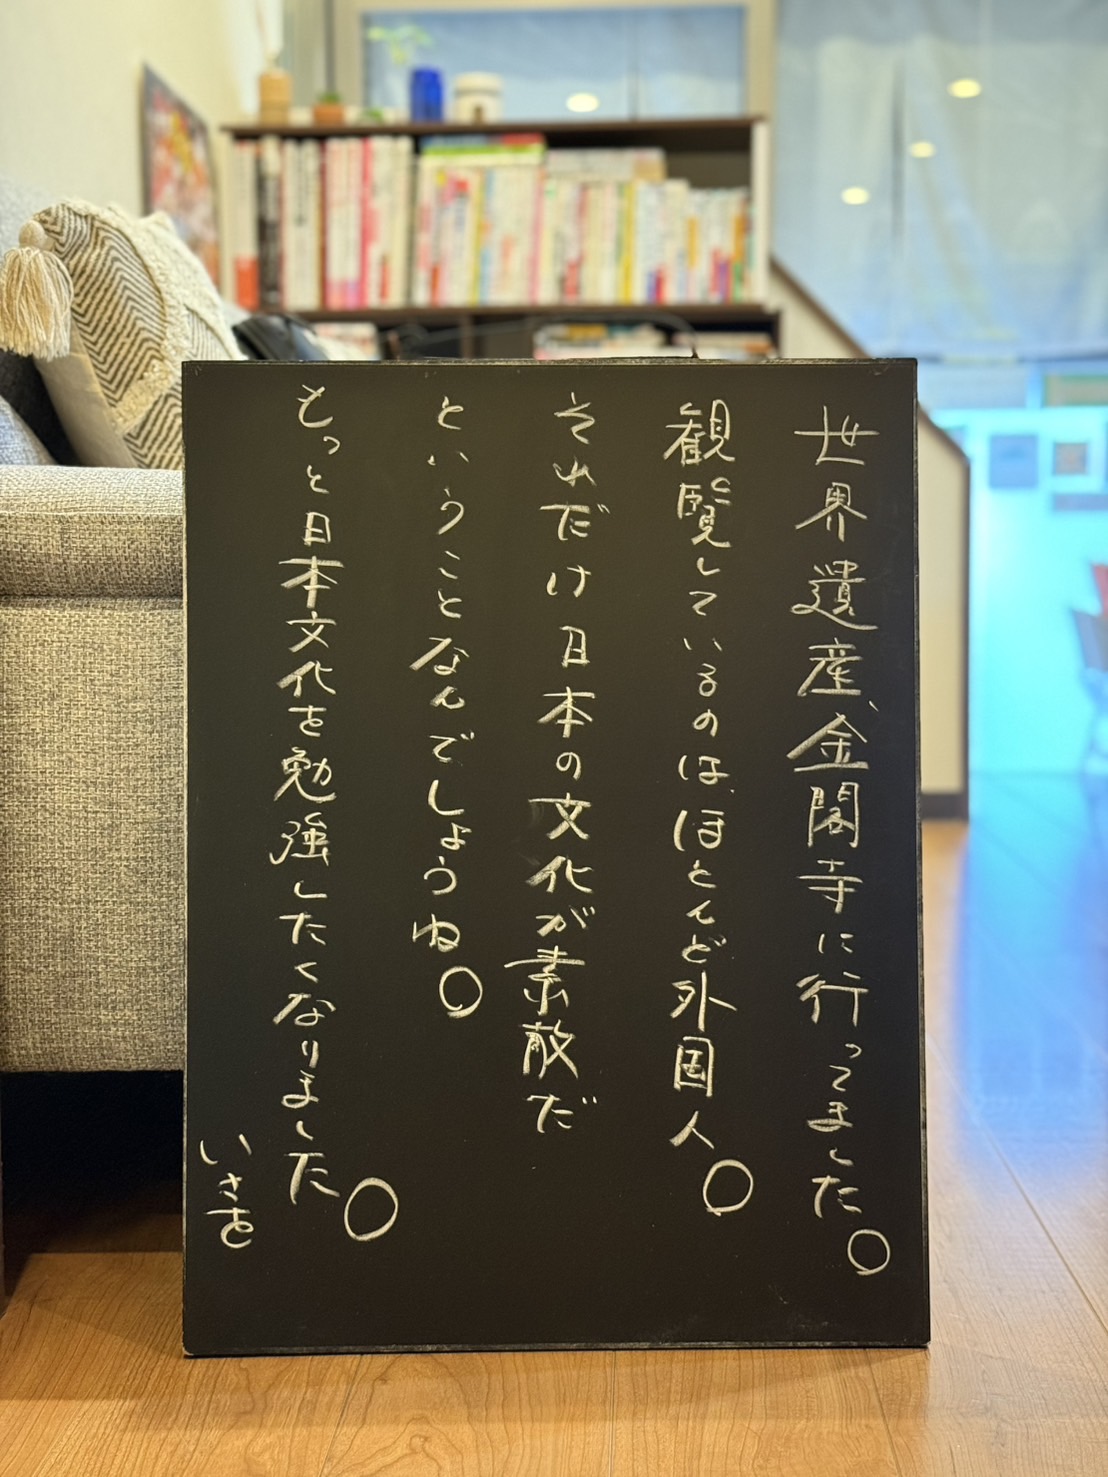 世界遺産、金閣寺に行ってました。
観覧しているのは、ほとんど外国人。
それだけ日本の文化が素敵だ
ということなんでしょうね。
もっと日本文化を勉強したくなりました。
いさを